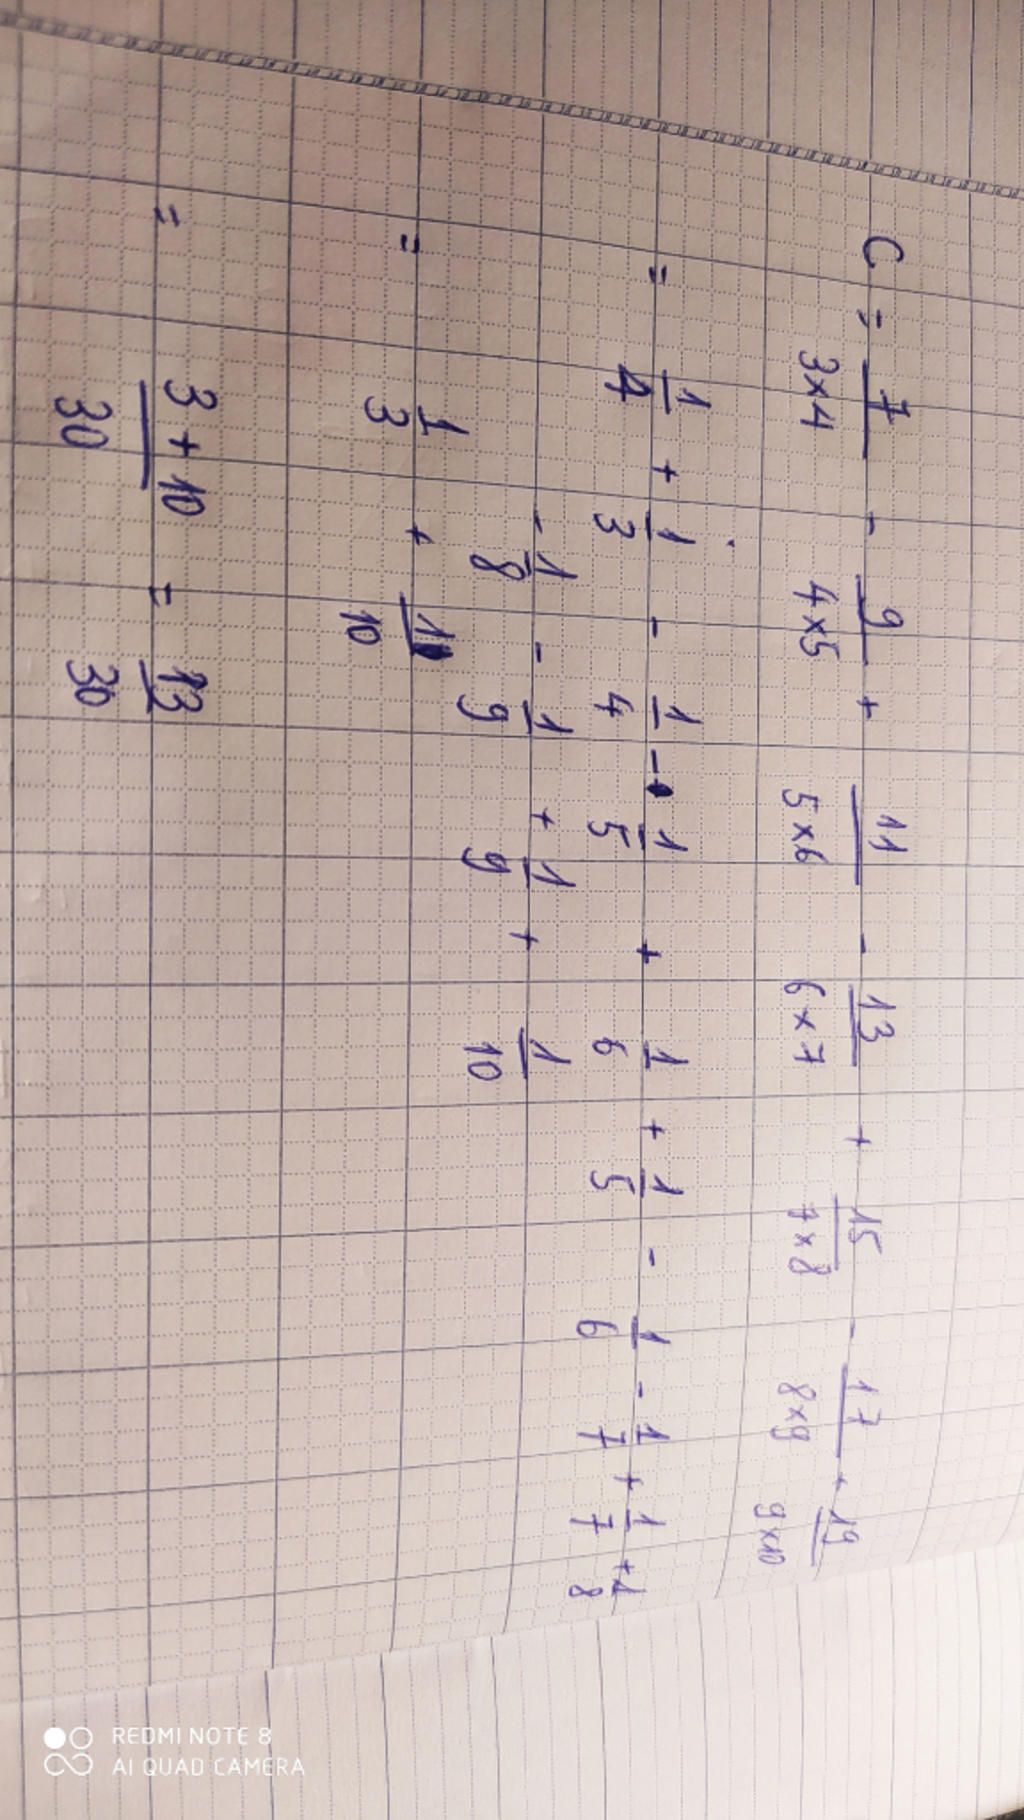 C = 7/3×4 - 9/4×5 + 11/5×6 - 13/6×7 + 15/7×8 - 17/8×9 + 19/9×10
= 1/4 + 1/3 - 1/4 - 1/5 + 1/6 + 1/5 - 1/6 - 1/7 + 1/7 + 1/8
- 1/8 - 1/9 + 1/9 + 1/10
= 1/3 + 1/10
= 3+10/30 = 13/30
REDMI NOTE 8
AI QUAD CAMERA